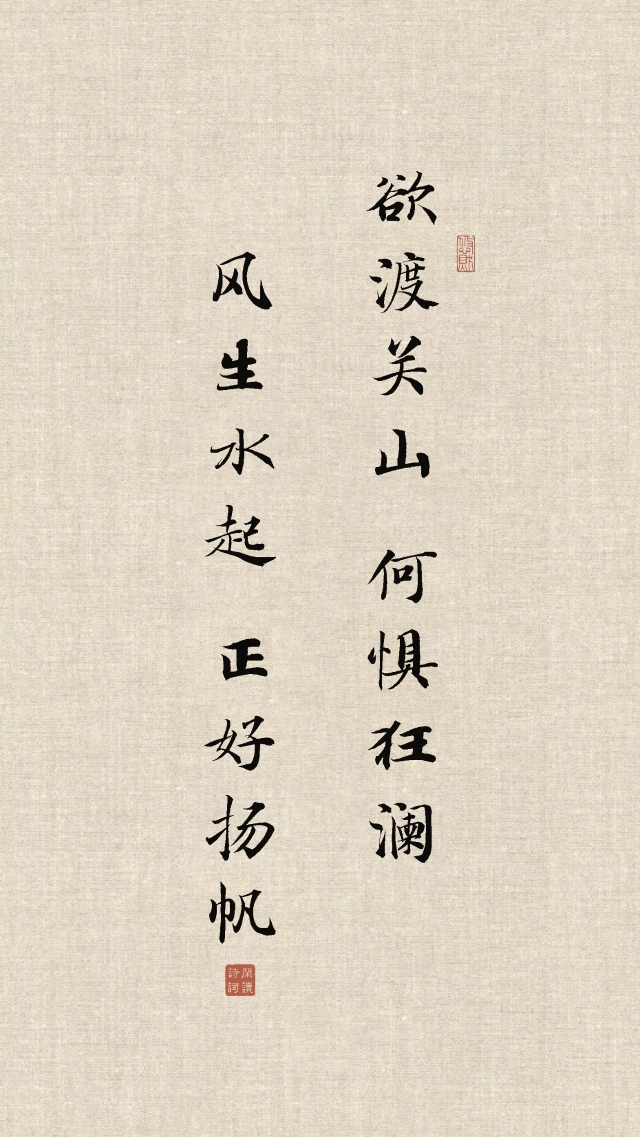 欲渡关山 何惧狂澜
风生水起 正好扬帆
閑讀
詩詞